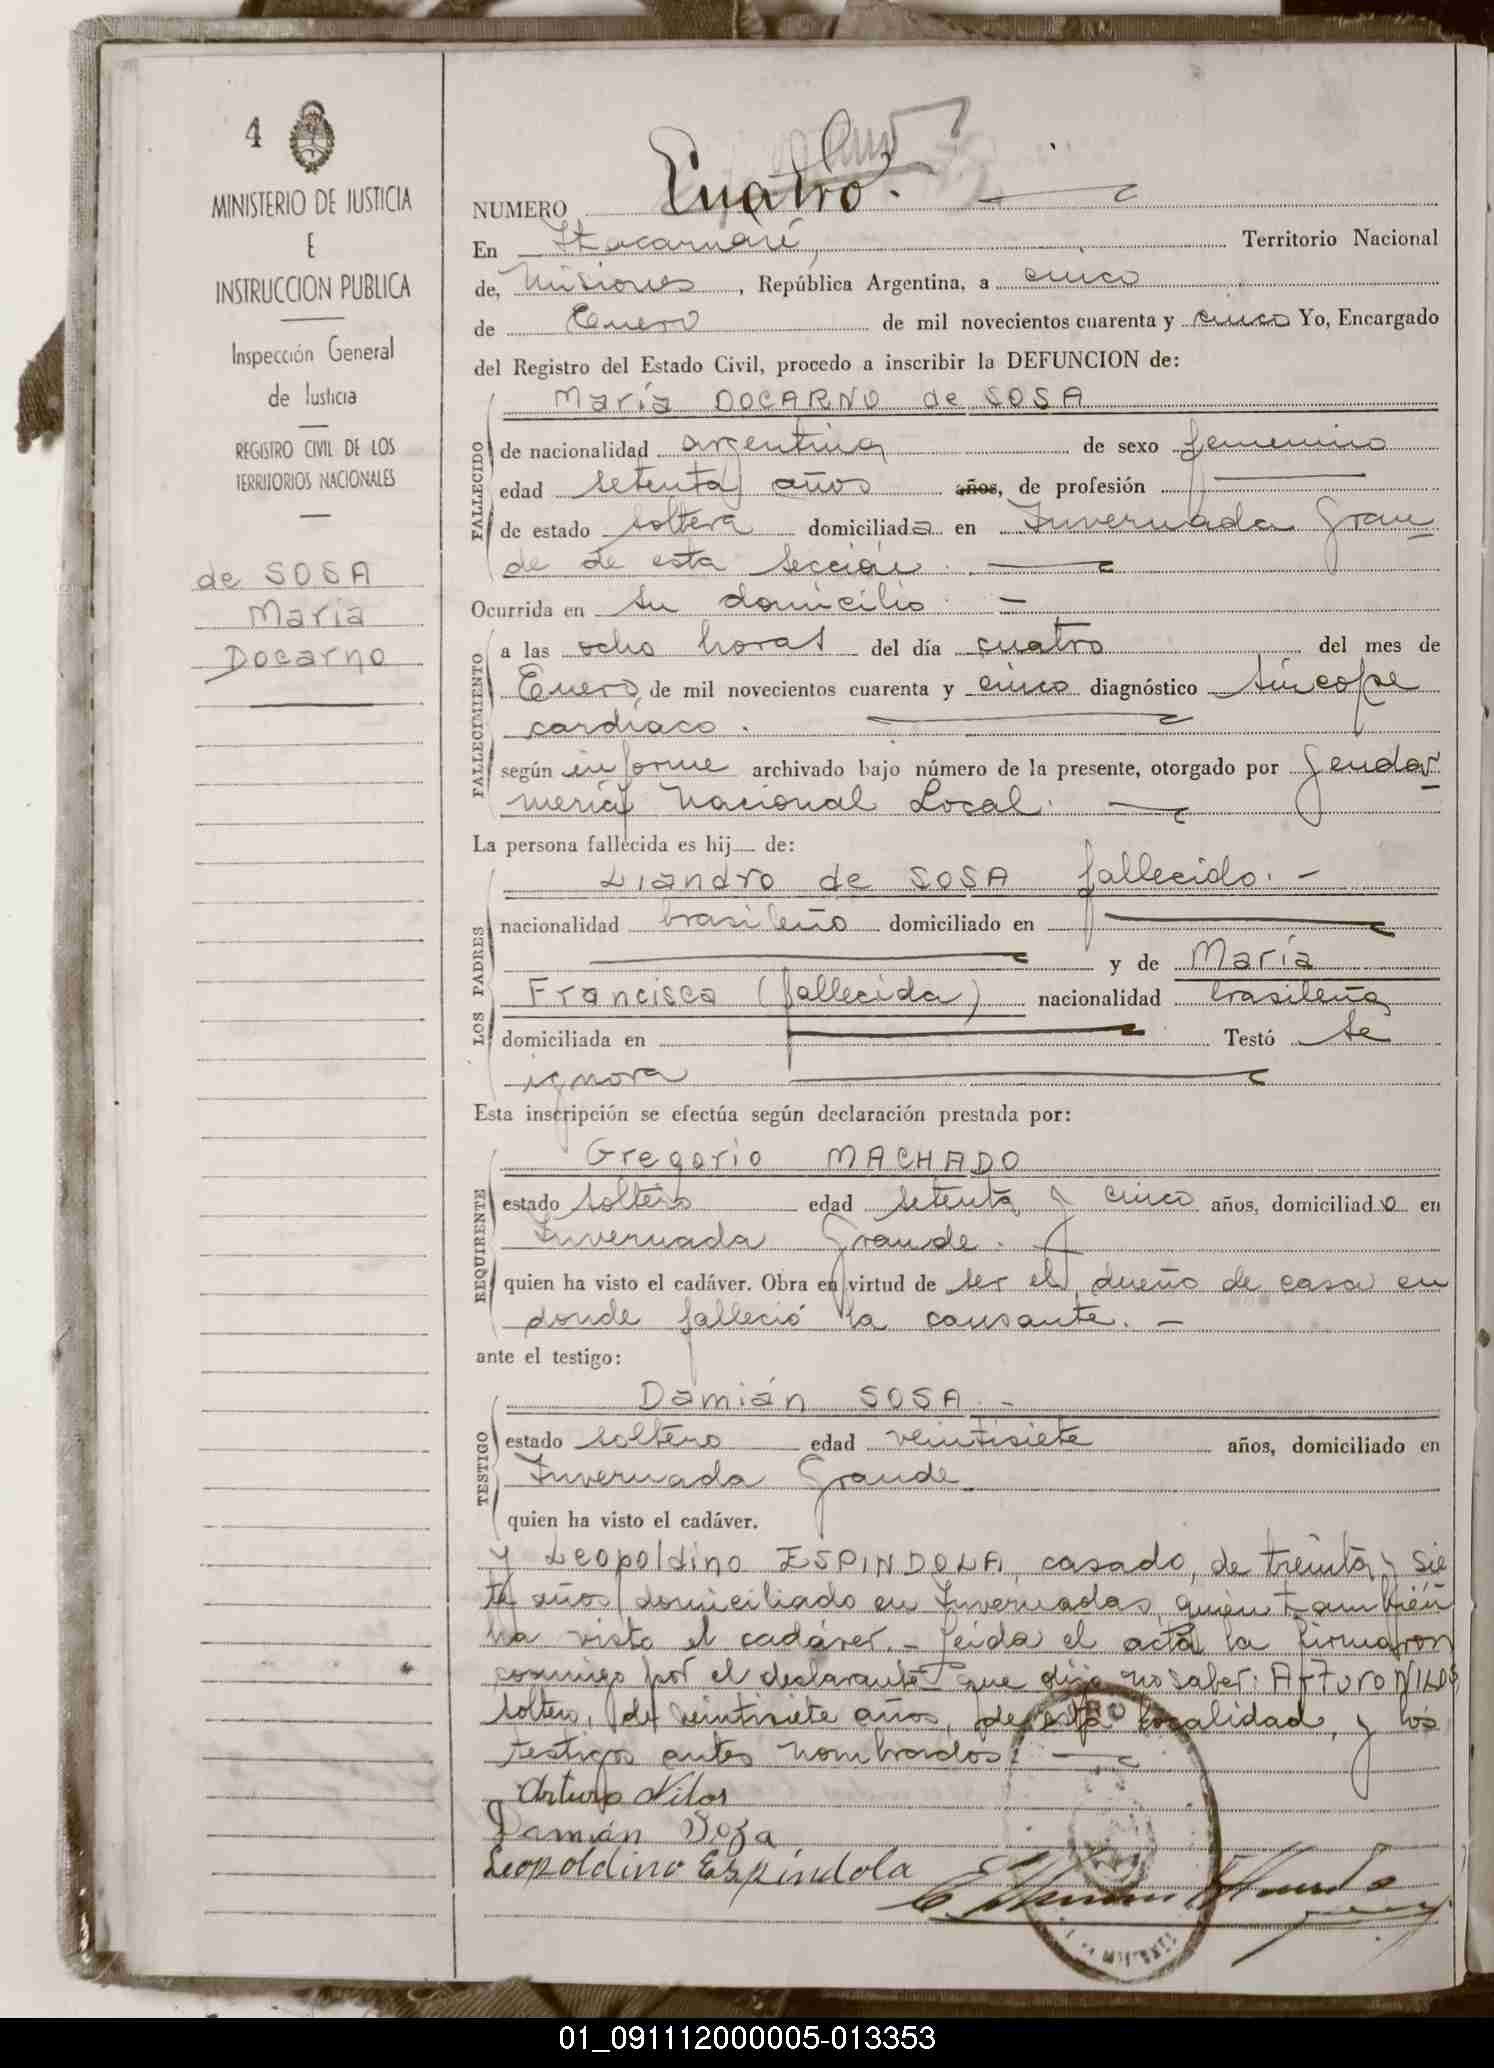 4
MINISTERIO DE JUSTICIA
E
INSTRUCCION PUBLICA
Inspección General
de Justicia
REGISTRO CIVIL DE LOS
TERRITORIOS NACIONALES
de SOSA
María
Docarno
NUMERO Cuatro.
En Itacaruaré, Territorio Nacional
de, Misiones, República Argentina, a cinco
de Enero de mil novecientos cuarenta y cinco Yo, Encargado
del Registro del Estado Civil, procedo a inscribir la DEFUNCION de:
María DOCARNO de SOSA
FALLECIDO
de nacionalidad argentina de sexo femenino
edad setenta años años, de profesión
de estado soltera domiciliada en Invernada Gran
de de esta sección.
Ocurrida en su domicilio. -
FALLECIMIENTO
a las ocho horas del día cuatro del mes de
Enero, de mil novecientos cuarenta y cinco diagnóstico síncope
cardíaco.
según informe archivado bajo número de la presente, otorgado por Gendar
mería Nacional Local.
La persona fallecida es hij de:
LOS PADRES
Liandro de SOSA fallecido. -
nacionalidad brasileño domiciliado en
y de María
Francisca (fallecida) nacionalidad brasileña
domiciliada en Testó se
ignora
Esta inscripción se efectúa según declaración prestada por:
REQUIRENTE
Gregorio MACHADO
estado soltero edad setenta y cinco años, domiciliado en
Invernada Grande.
quien ha visto el cadáver. Obra en virtud de ser el dueño de casa en
donde falleció la causante. -
ante el testigo:
TESTIGO
Damián SOSA. -
estado soltero edad veintisiete años, domiciliado en
Invernada Grande
quien ha visto el cadáver.
y Leopoldino ESPINDOLA, casado, de treinta y sie
te años domiciliado en Invernadas, quien también
ha visto el cadáver. - Leída el acta la firmaron
conmigo por el declarante que dijo no saber: Arturo NILOS
soltero, de veintisiete años, de esta localidad, y los
testigos antes nombrados.
Arturo Nilos
Damián Soza
Leopoldino Espíndola
01_091112000005-013353